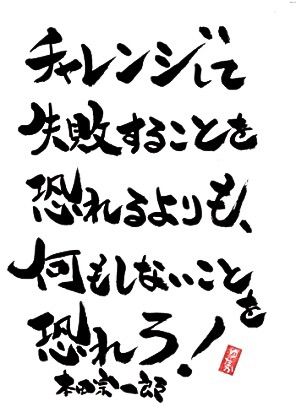 チャレンジして
失敗することを
恐れるよりも、
何もしないことを
恐れろ！
本田宗一郎